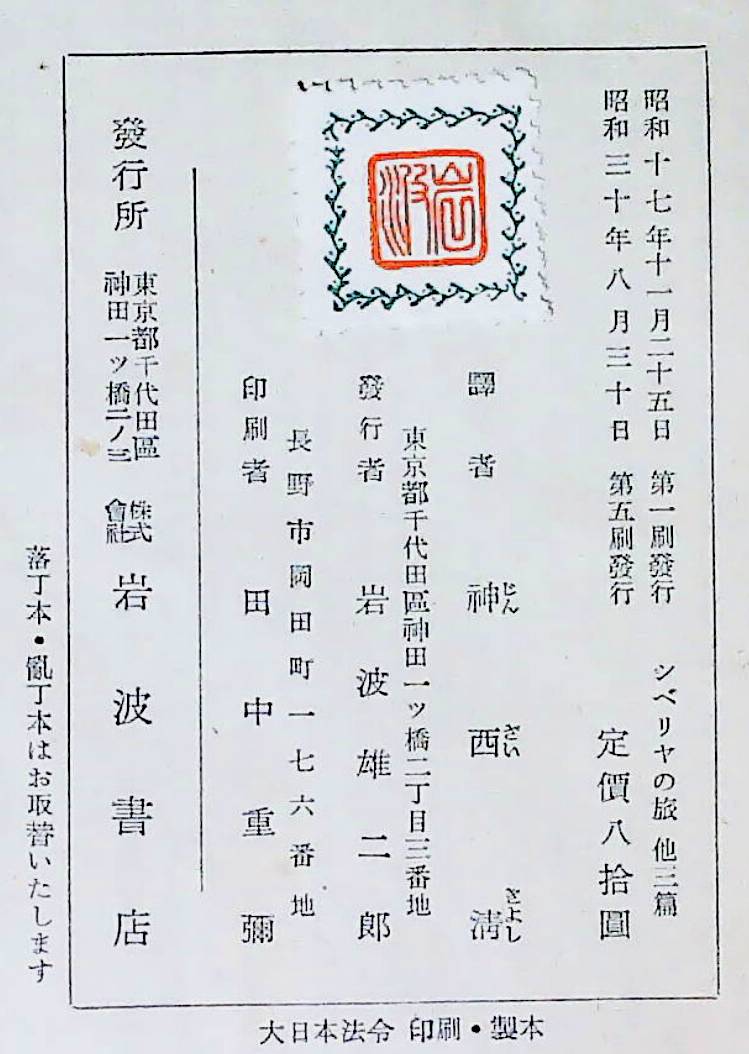 昭和十七年十一月二十五日 第一刷發行 シベリヤの旅 他三篇
昭和三十年八月三十日 第五刷發行 定價八拾圓
譯者 神西淸
じん ざい きよし
東京都千代田區神田一ツ橋二丁目三番地
發行者 岩波雄二郎
長野市岡田町一七六番地
印刷者 田中重彌
岩波
發行所 東京都千代田區神田一ツ橋二ノ三 株式會社 岩波書店
落丁本・亂丁本はお取替いたします
大日本法令 印刷・製本